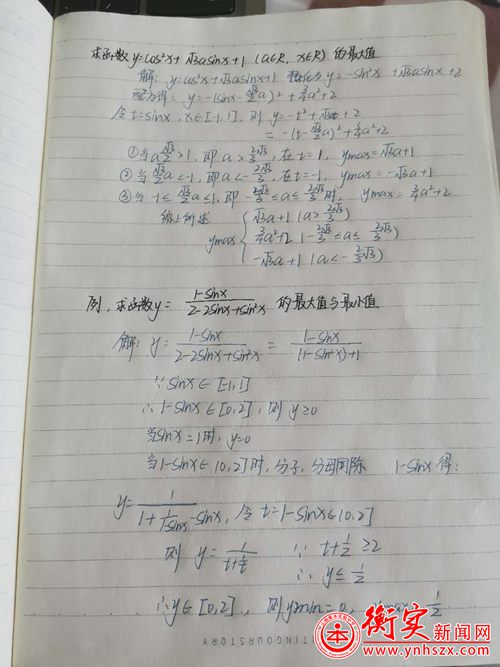 求函数 y=cos²x+√3asinx+1 (a∈R, x∈R) 的最大值
解: y=cos²x+√3asinx+1 转化为 y=-sin²x +√3asinx+2
配方得: y=-(sinx-√3/2a)²+3/4a²+2
令t=sinx, x∈[-1,1], 则 y=-t²+√3at+2
=-(t-√3/2a)²+3/4a²+2
①当a√3/2>1, 即a>2√3/3, 在t=1, ymax=√3a+1
②当√3/2a<-1, 即a<-2√3/3, 在t=-1, ymax=-√3a+1
③当-1≤√3/2a≤1, 即-2√3/3≤a≤2√3/3时, ymax=3/4a²+2
综上所述
ymax { √3a+1 (a>2√3/3)
3/4a²+2 (-2√3/3≤a≤2√3/3)
-√3a+1 (a<-2√3/3)
例, 求函数y= 1-sinx/2-2sinx+sin²x 的最大值与最小值
解: y= 1-sinx/2-2sinx+sin²x = 1-sinx/(1-sin²x)+1
∵sinx∈[-1,1]
∴1-sinx∈[0,2], 则 y≥0
当sinx=1时, y=0
当1-sinx∈(0,2]时, 分子, 分母同除 1-sinx 得:
y= 1/1+1/1-sinx-sinx, 令t=1-sinx∈(0,2]
则 y= 1/t+1/t ∵ t+1/t≥2
∴ y≤1/2
∴y∈[0,2], 则ymin=0, 1/2
TINGOURSTORY
衡实新闻网
www.ynhszx.com